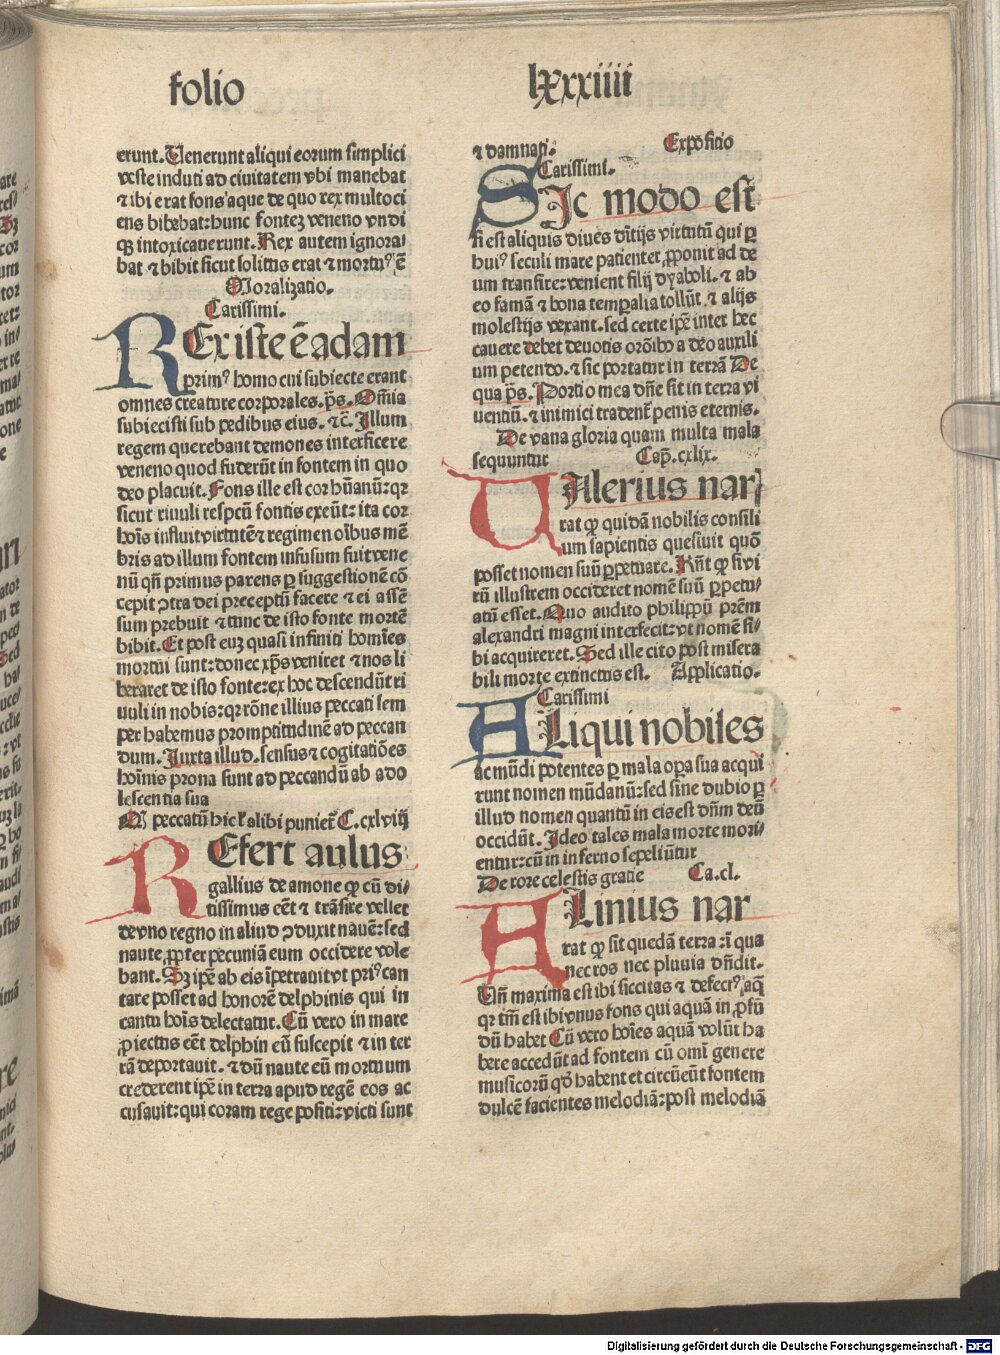 folio lxxxiiii
erunt. Uenerunt aliqui eorum simplici
veste induti ad ciuitatem vbi manebat
⁊ ibi erat fons aque de quo rex multoci
ens bibebat: hunc fontez veneno vndi
qꝫ intoxicauerunt. Rex autem ignora/
bat ⁊ bibit sicut solitus erat ⁊ mortuꝰ ē
Moralizatio.
Carissimi.
REx iste ē adam
primꝰ homo cui subiecte erant
omnes creature corporales. p̄s. Om̄ia
subiecisti sub pedibus eius. ⁊c̄. Illum
regem querebant demones interficere
veneno quod fuderūt in fontem in quo
deo placuit. Fons ille est cor hūanū: qꝛ
sicut riuuli respcū fontis exeūt: ita cor
hoīs influit virtutē ⁊ regimen oībus mē
bris ad illum fontem infusum fuit vene
nū qn̄ primus parens ꝑ suggestionē cō
cepit ꝯtra dei preceptū facere ⁊ ei assē
sum prebuit ⁊ tunc de isto fonte mortē
bibit. Et post euꝫ quasi infiniti homīes
mortui sunt: donec xp̄s veniret ⁊ nos li
beraret de isto fonte: ex hoc descendūt ri
uuli in nobis: qꝛ rōne illius peccati sem
per habemus promptitudinē ad peccan
dum. Iuxta illud. sensus ⁊ cogitatiōes
hoīnis prona sunt ad peccandū ab ado
lescentia sua
Ꝙ peccatū hic l̓ alibi punietꝛ C. cxlviij
REfert aulus
gallius de amone ꝙ cū di/
tissimus eēt ⁊ trāsire vellet
de vno regno in aliud ꝯduxit nauē: sed
naute ꝓpter pecuniā eum occidere vole
bant. Sꝫ ip̄e ab eis īpetrauit vt priꝰ can
tare posset ad honorē delphinis qui in
cantu hoīs delectatur. Cū vero in mare
ꝓiectus eēt delphin eū suscepit ⁊ in ter
rā deportauit. ⁊ dū naute eū mortuum
crederent ip̄e in terra apud regē eos ac
cusauit: qui coram rege positi: victi sunt
⁊ damnati. Expositio
Carissimi.
SIc modo est
si est aliquis diues diītijs virtutū qui ꝑ
huiꝰ seculi mare patienter ꝓponit ad de
um transire: venient filij dyaboli. ⁊ ab
eo famā ⁊ bona temꝑalia tollūt. ⁊ alijs
molestijs vexant. sed certe ip̄e inter hec
cauere debet deuotis orōibꝰ a deo auxili
um petendo. ⁊ sic portatur in terrā De
qua p̄s. Portio mea dn̄e sit in terra vi
uentiū. ⁊ inimici tradent̄ penis eternis.
De vana gloria quam multa mala
sequuntur Cap̄. cxlix.
UAlerius nar
rat ꝙ quidā nobilis consili
um sapientis quesiuit quō
posset nomen suū ꝑpetuare. Rn̄t ꝙ si vi
rū illustrem occideret nomē suū ꝑpetu/
atū esset. Quo audito philippū prēm
alexandri magni interfecit: vt nomē si/
bi acquireret. Sed ille cito post misera
bili morte extinctus est. Applicatio.
Carissimi
ALiqui nobiles
ac mūdi potentes ꝑ mala oꝑa sua acqui
runt nomen mūdanū: sed sine dubio ꝑ
illud nomen quantū in eis est dn̄m deū
occidūt. Ideo tales mala morte mori/
entur: cū in inferno sepeliūtur
De rore celestis gratie Ca. cl.
PLinius nar
rat ꝙ sit quedā terra: ī qua
nec ros nec pluuia dn̄dit.
Un̄ maxima est ibi siccitas ⁊ defectꝰ aq̄
qꝛ tm̄ est ibi vnus fons qui aquā in ꝓfū
dū habet Cū vero hoīes aquā volūt ha
bere accedūt ad fontem cū omī genere
musicorū qđ habent et circūeūt fontem
dulcē facientes melodiā: post melodiā
Digitalisierung gefördert durch die Deutsche Forschungsgemeinschaft - DFG